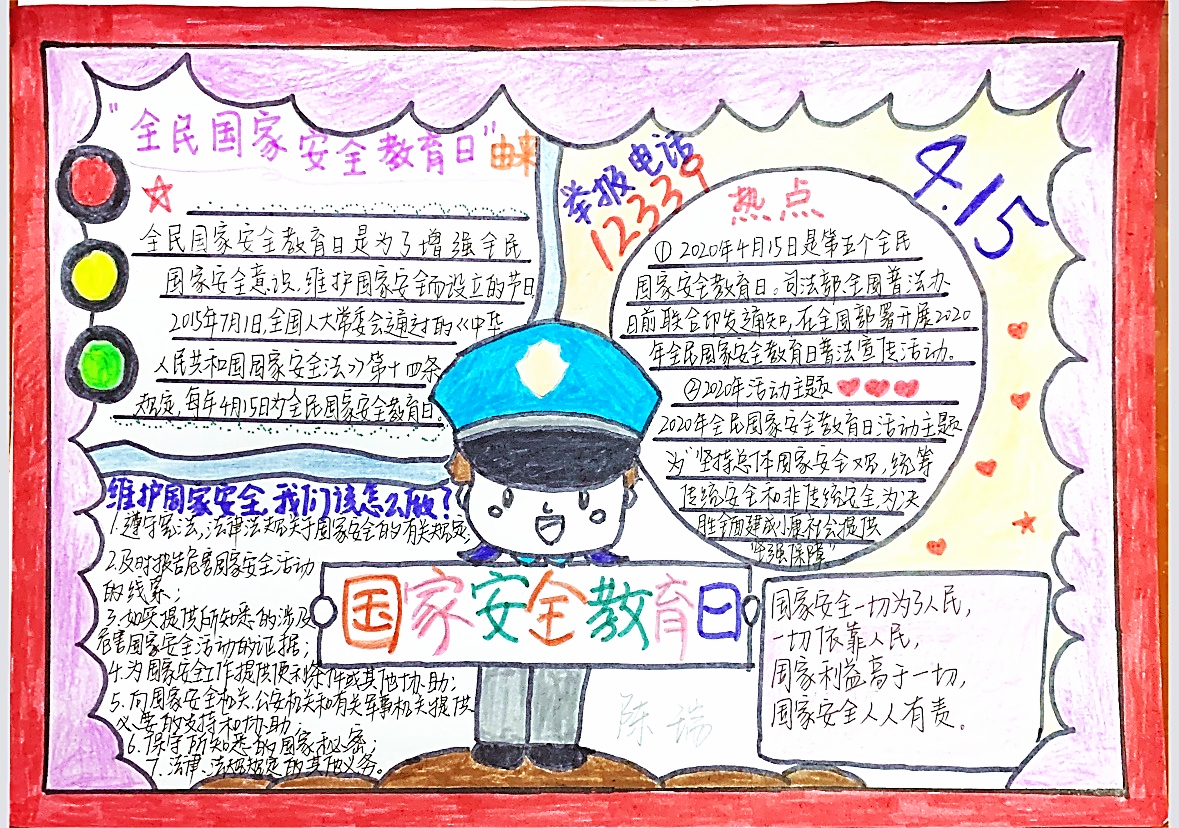 “全民国家安全教育日”由来
全民国家安全教育日是为了增强全民
国家安全意识、维护国家安全而设立的节日
2015年7月1日,全国人大常委会通过的《中华
人民共和国国家安全法》第十四条
规定,每年4月15日为全民国家安全教育日
举报电话
12339
4.15
热点
①2020年4月15日是第五个全民
国家安全教育日。司法部、全国普法办
日前联合印发通知,在全国部署开展2020
年全民国家安全教育日普法宣传活动。
②2020年活动主题
2020年全民国家安全教育日活动主题
为“坚持总体国家安全观,统筹
传统安全和非传统安全,为决
胜全面建成小康社会提供
坚强保障”
维护国家安全,我们该怎么做?
1.遵守宪法、法律法规关于国家安全的有关规定;
2.及时报告危害国家安全活动
的线索;
3.如实提供所知悉的涉及
危害国家安全活动的证据;
4.为国家安全工作提供便利条件或其他协助;
5.向国家安全机关、公安机关和有关军事机关提供
必要的支持和协助;
6.保守所知悉的国家秘密;
7.法律、法规规定的其他义务。
国家安全教育日
国家安全一切为了人民,
一切依靠人民,
国家利益高于一切,
国家安全人人有责。
陈瑞